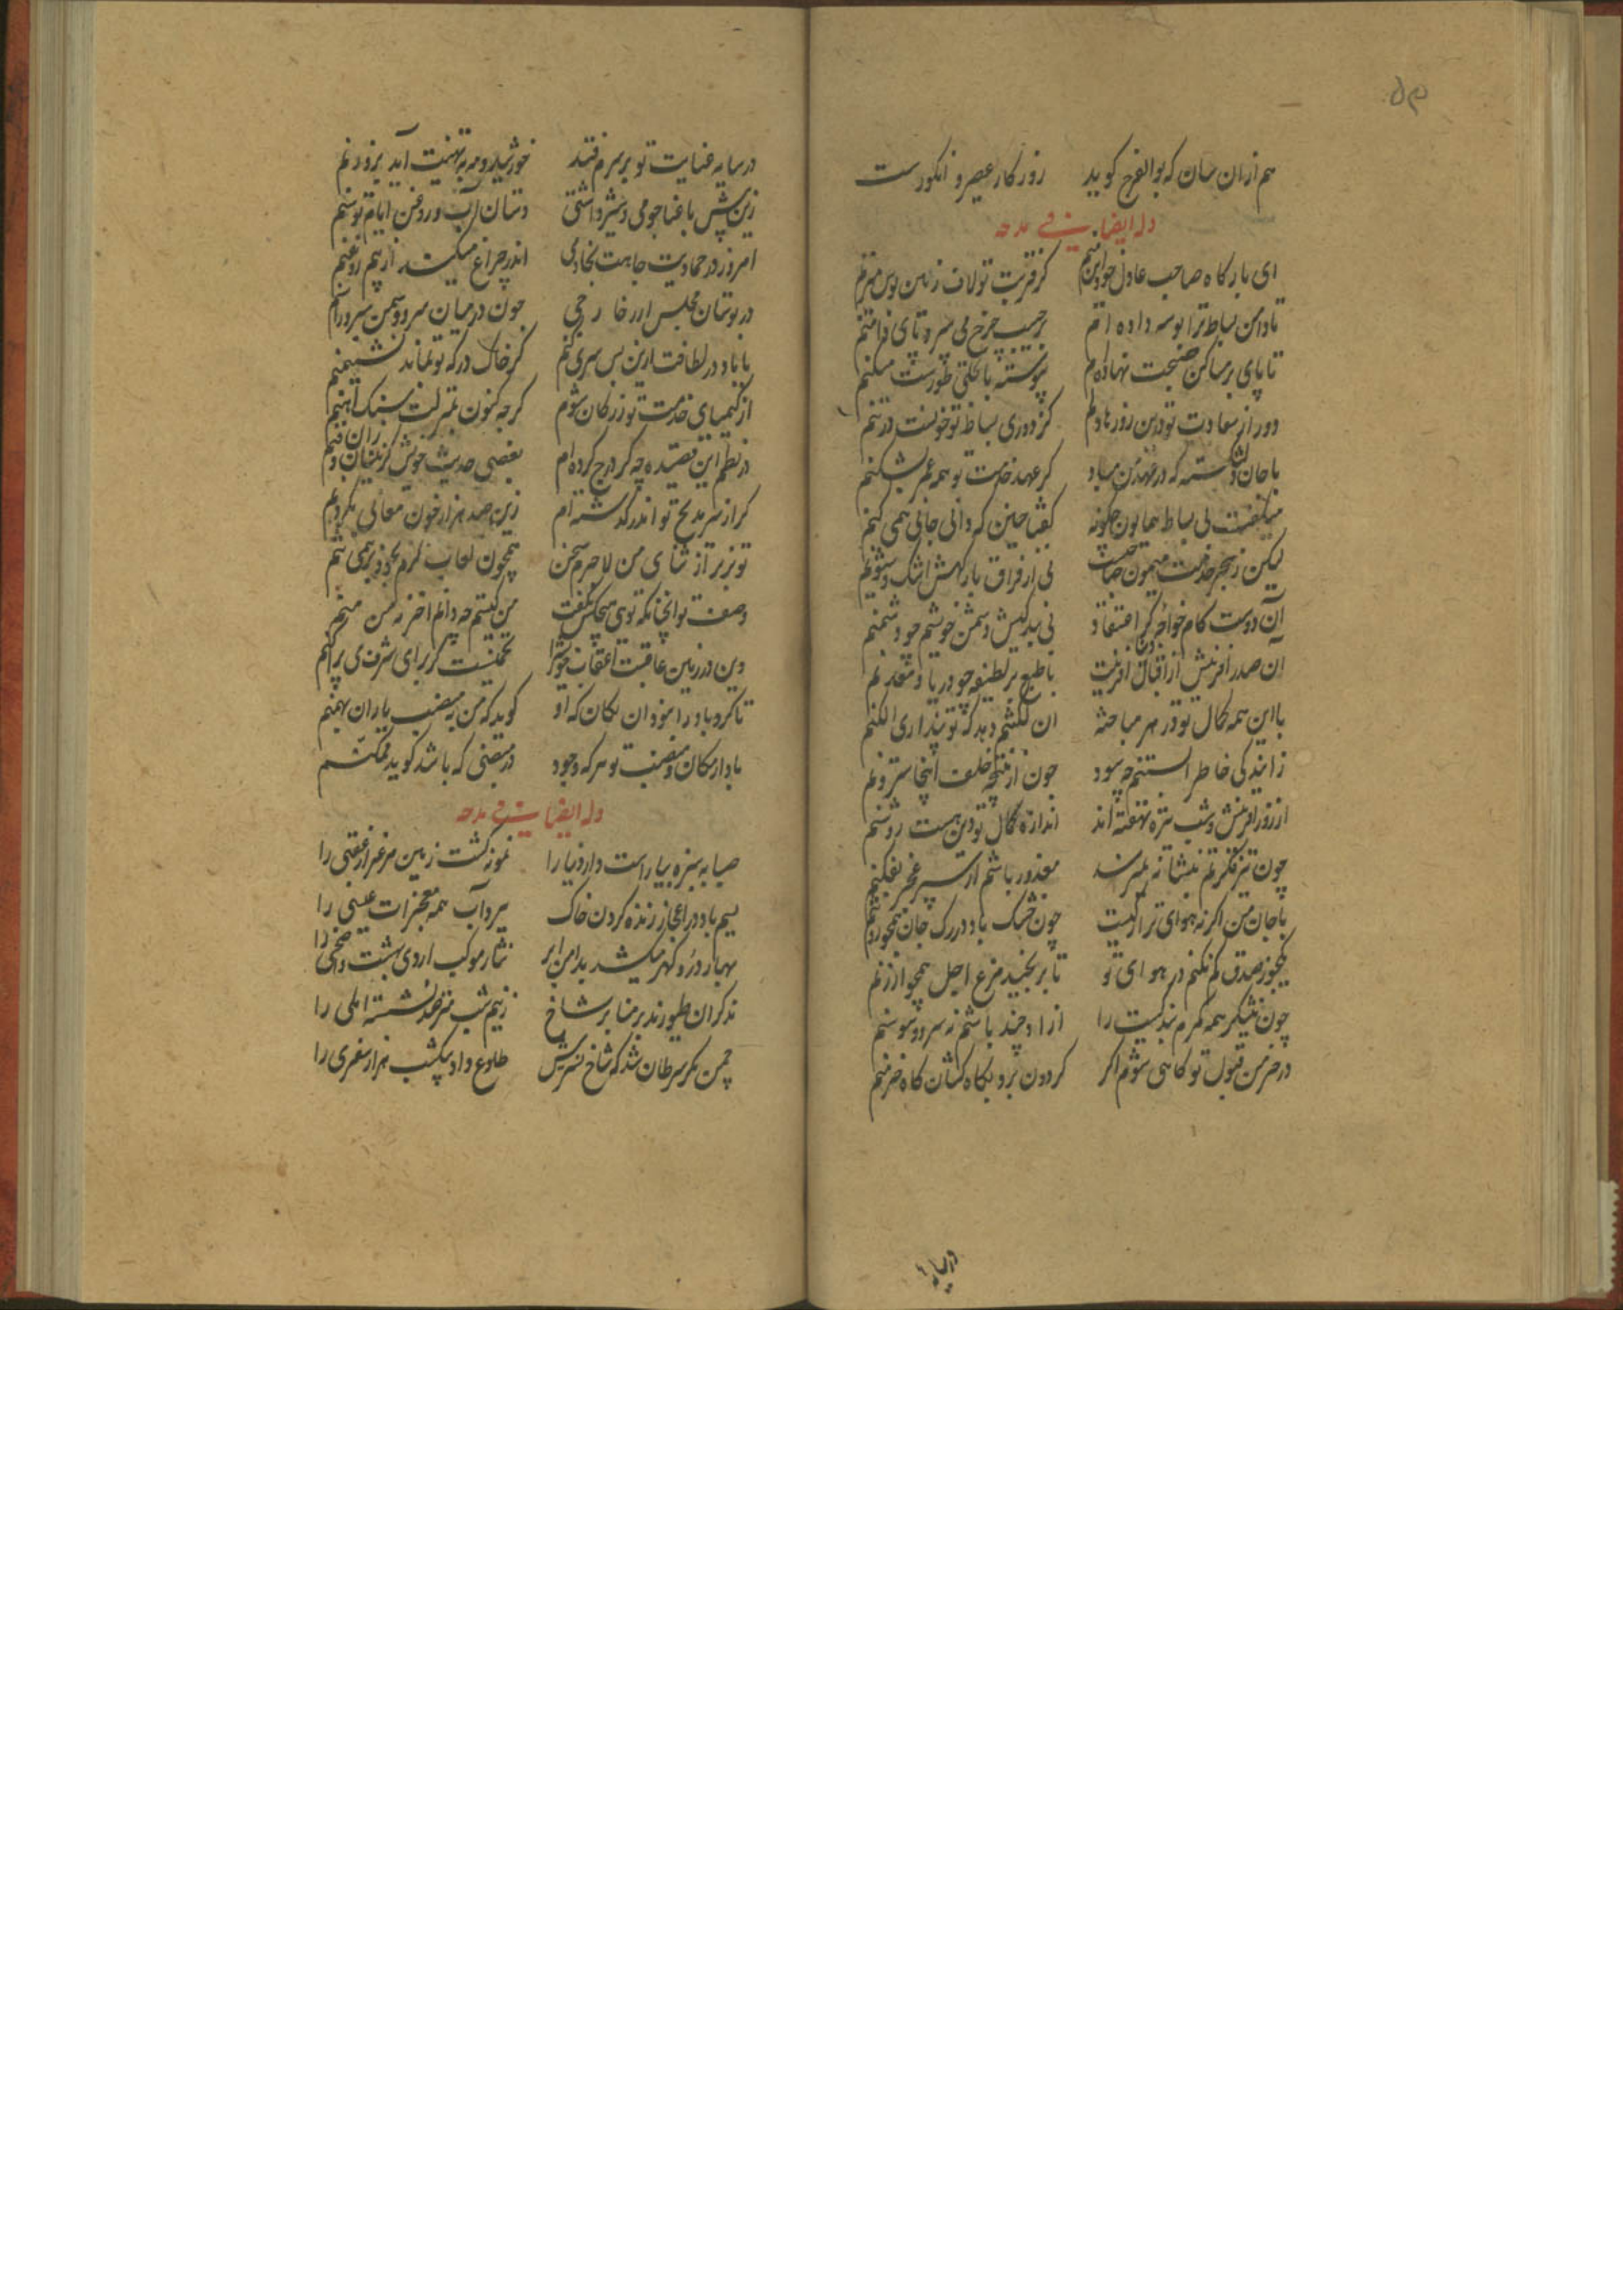 هم ازان سان که بوالفرج گوید روزگار عصیر و انگورست
وله ایضا فی مدحه
ای بارگاه صاحب عادل خود این منم کز قربت تو لاف زمین بوس میزنم
تا دامن بساط ترا بوسه داده ام بر جیب چرخ می سپرد پای دامنم
تا پای بر مساکن صحنت نهاده ام پیوسته با تجلی طورست مسکنم
دور از سعادت تو درین روزها دلم کز دوری بساط تو خونست در تنم
با جان دلشکسته که در عهد من مباد گر عهد خدمت تو همه عمر بشکنم
میگفت بی بساط همایون چگونه گفتا چنین که دانی جانی همی کنم
لیکن ز هجر خدمت میمون صاحبت نی از فراق بارگهش اشک و شیونم
آن دوست کام خواجه کز اعتقاد نی بندگیش دشمن خویشم چو دشمنم
ان صدر آفرینش از اقبال آفرینت با طبع پر لطیفه چو دریا و معدنم
با این همه کمال تو در هر مباحثه ان لکنتم دهد که تو پنداری الکنم
زایندگی خاطر آبستنم چه سود چون از نتیجه خلف اینجا سترونم
از روز آفرینش و شب تیره نهفته اند اندازه کمال تو وین هست روشنم
چون تیر فکرتم بنشانه نمیرسد معذور باشم ار سپر عجز بفکنم
با جان من اگر نه هوای ترا رگیست چون خشک باد در رگ جان همچو روینم
یکجو ز صدق کم نکنم در هوای تو تا بر نچیند مرغ اجل همچو ارزنم
چون نیشکر همه کمرم بندگیت را آزاد چند باشم نه سرو و سوسنم
در خرمن قبول تو کاهی شوم اگر گردون برد بکاه کشان کاه خرمنم
در سایه
در سایه عنایت تو بر سرم فتد خورشید و مه به تهنیت آید بروزنم
زین پیش با عنا چو می و شیر داشتی دستان آب و روغن ایام توسنم
امروز در حمایت جاهت بخادمی اندر چراغ میکشد از بیم روغنم
در بوستان مجلس ار خارجی چون در میان سرو و سمن سر برآورم
با باد در لطافت ازین پس سری کنم گر خاک درگه تو نماند نشیمنم
از کیمیای خدمت تو زر کان شوم گرچه کنون بمنزلت سنگ و آهنم
در نظم این قصیده چه گر درج کرده ام بعضی حدیث خویش
گر از سر مدیح تو اندر گذشته ام زین صد هزار خون معانی بگردنم
تو برتر از ثنای من لاجرم سخن همچون لعاب کرم بخود بر همی تنم
وصف تو آنچنانکه تویی هیچکس نگفت من کیستم چه دانم آخر نه من منم
وین در زمین عاقبت اعقاب خویش را تخمیست کز برای شرف می پراکنم
تا گرد باد را نبود آن مکان که او گوید که من بمنصب باران بهمنم
باد از مکان و منصب تو هر که در وجود در منصبی که باشد گوید ممکنم
وله ایضا فی مدحه
صبا به سبزه بیاراست دار دنیا را نمونه گشت زمین مرغزار عقبی را
نسیم باد در اعجاز زنده کردن خاک ببرد آب همه معجزات عیسی را
بهار در و گهر میکشد بدامن ابر نثار موکب اردی بهشت و اضحی را
مذکران طیورند بر منابر شاخ ز نیم شب مترصد نشسته املی را
چمن مگر سرطان شد که شاخ نسرینش طلوع داد بیکشب هزار شعری را